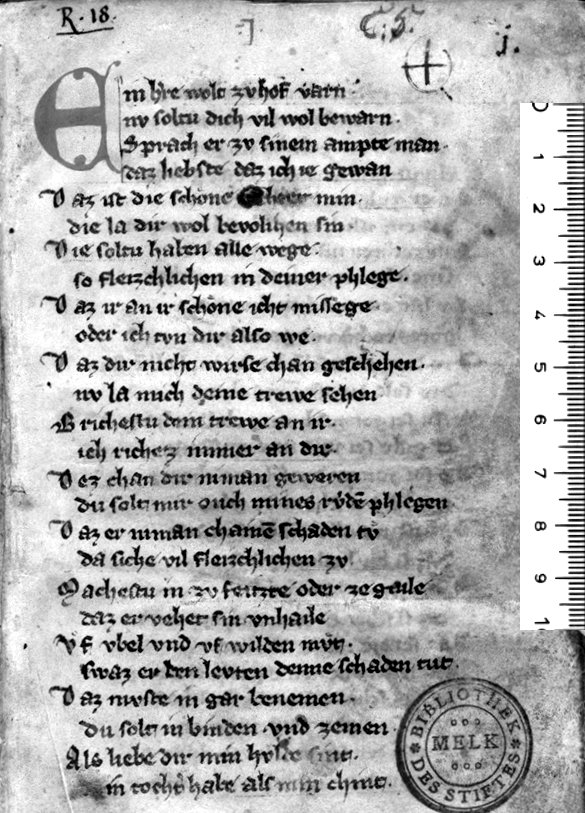 R. 18.
C. 5.
1.
Ein h're wolt zv hof varn.
nv soltu dich vil wol bewarn.
Sprach er zv sinem ampte man.
daz liebste daz ich ie gewan
Daz ist die schone min.
die la dir wol bevolhen sin
Die soltu haben alle wege.
so fleizchlichen in deiner phlege.
Daz ir an ir schone icht missege
oder ich tvn dir also we.
Daz dir nicht wirse chan geschehen.
nv la mich deine trewe sehen
Brichestu dein trewe an ir.
ich richez immer an dir.
Dez chan dir niman geweren
du solt mir ouch mines rvdē phlegen
Daz er niman chainē schaden tv
da siche vil fleizchlichen zv.
Machestu in zv feizte oder ze gaile
daz er vehet sin vnhaile
Vf vbel vnd vf wilden mvt.
swaz er den levten denne schaden tut.
Daz mvste in gar benemen.
Du solt in binden vnd zemen.
Als liebe dir min hvlde sint.
in tocht habe als min chint.
0
1
2
3
4
5
6
7
8
9
1
BIBLIOTHEK
MELK
DES STIFTES